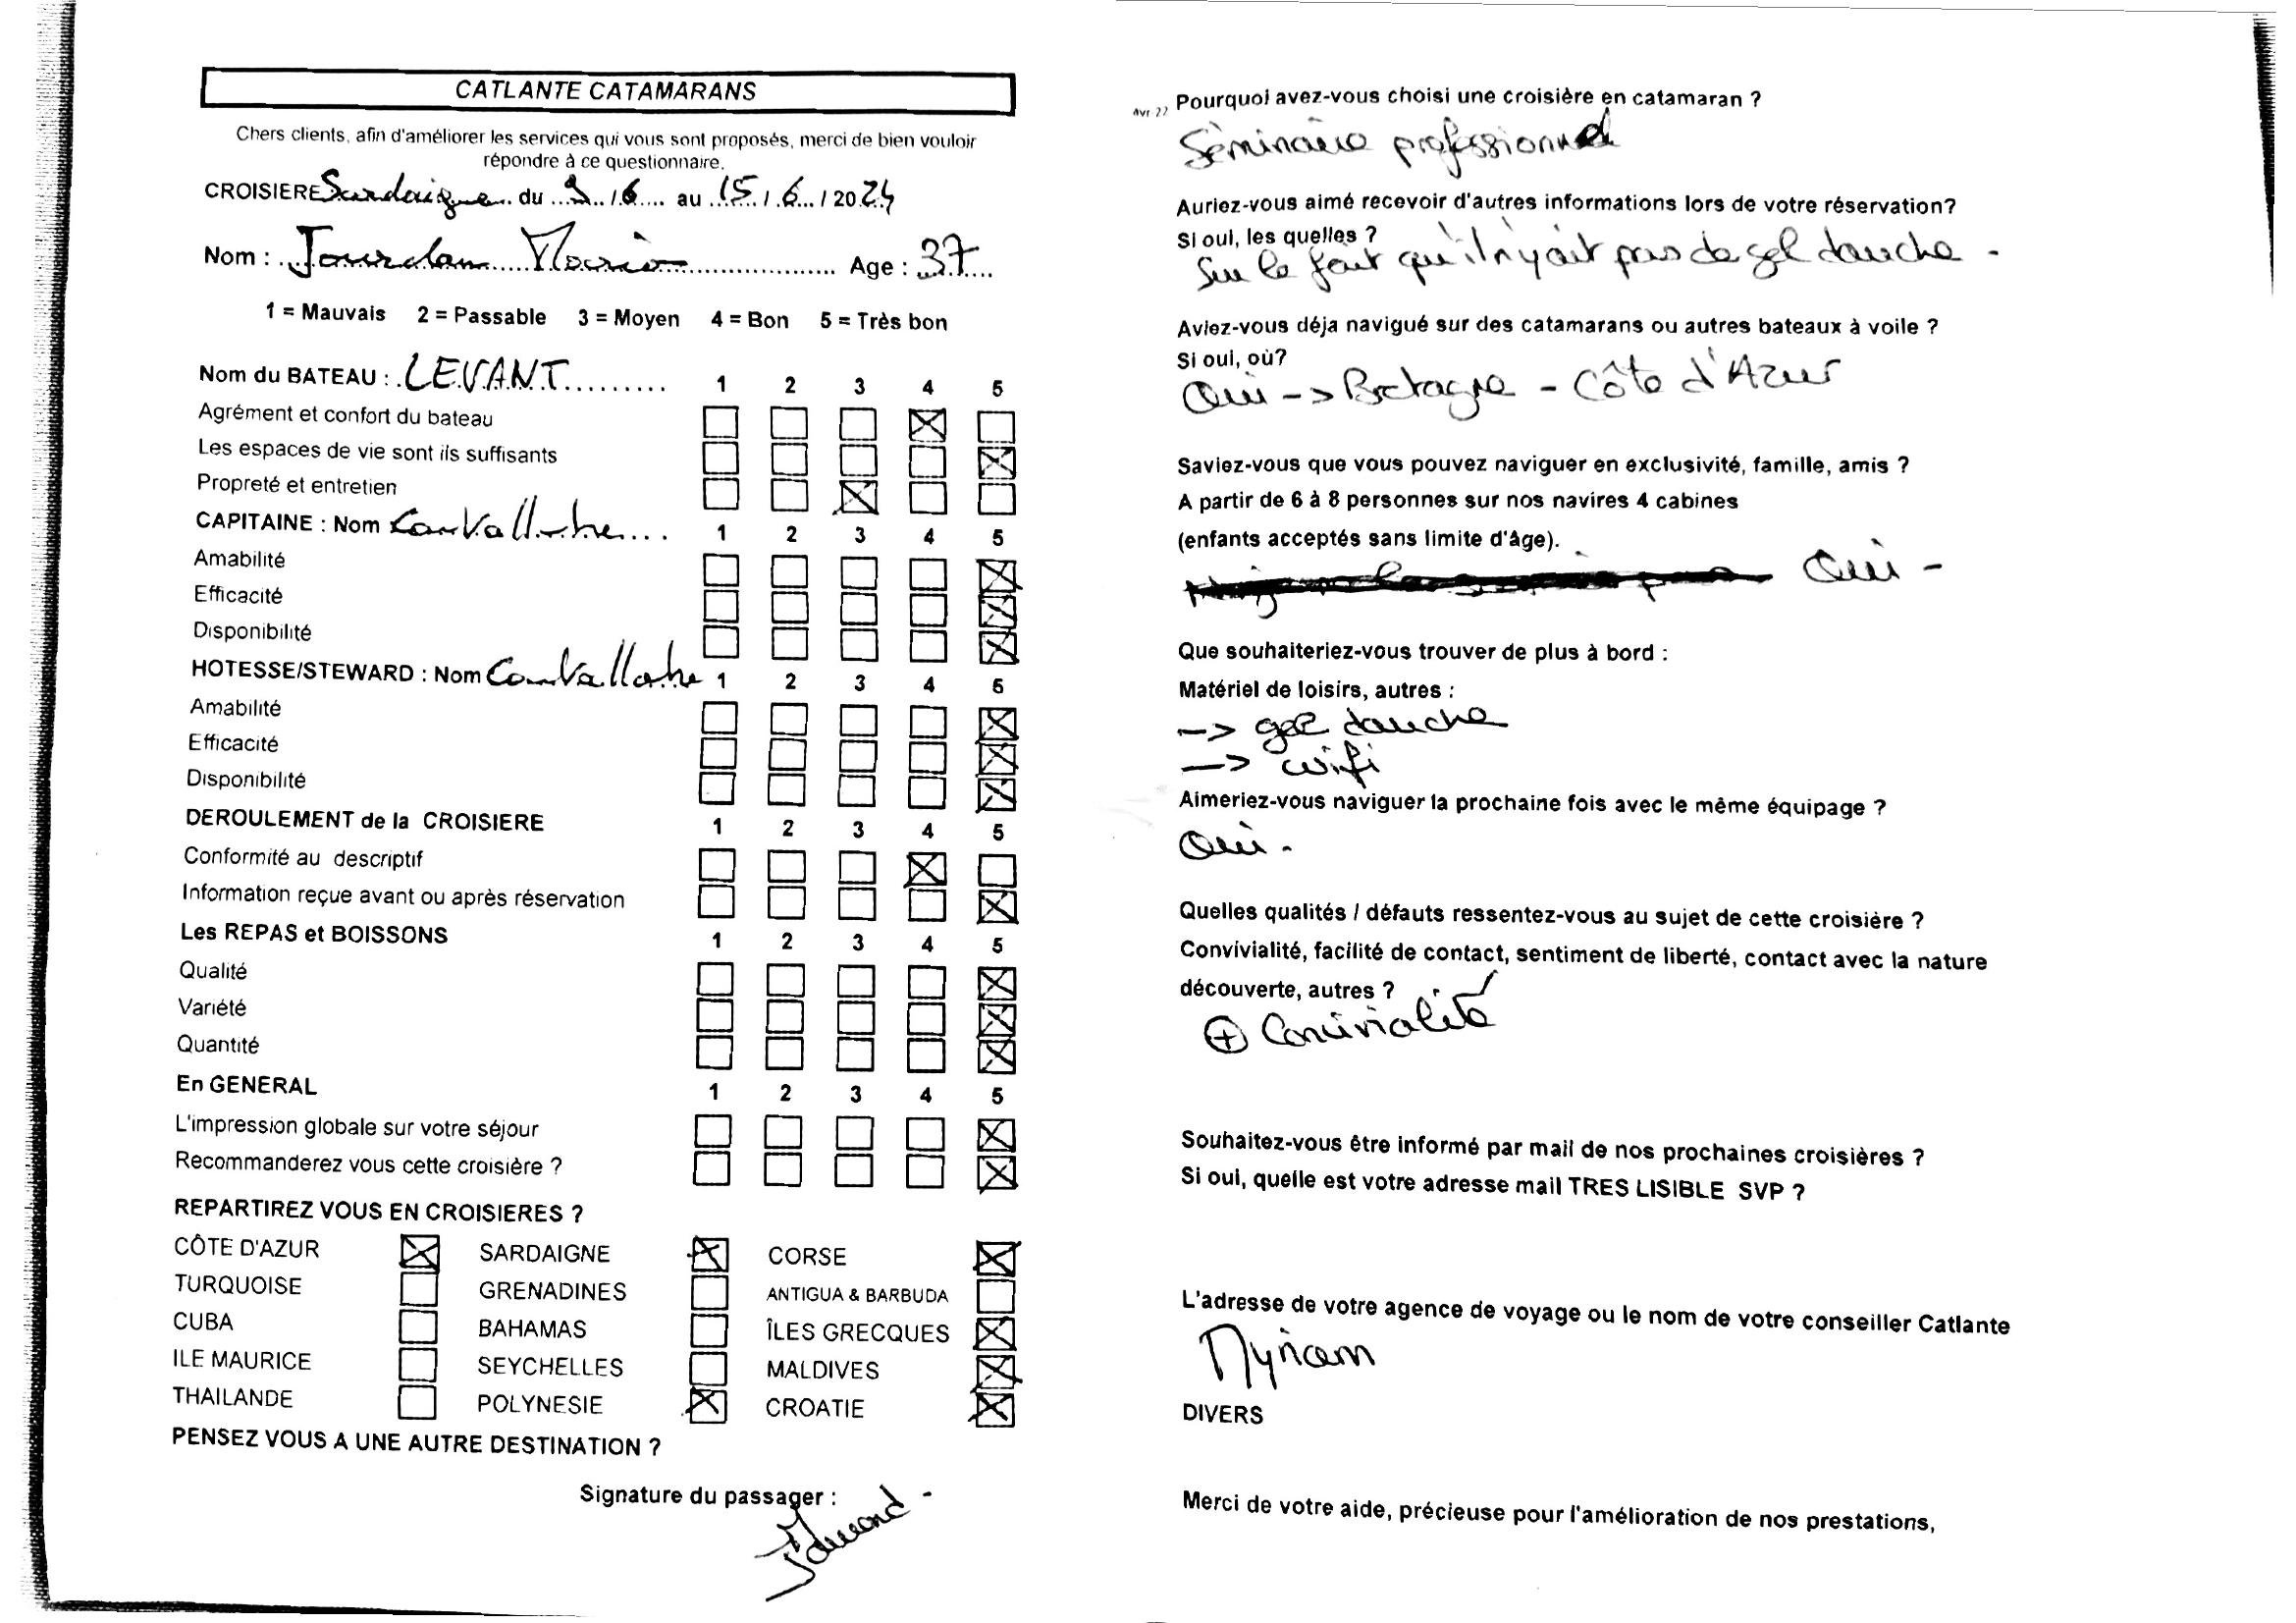 CATLANTE CATAMARANS
Chers clients, afin d'améliorer les services qui vous sont proposés, merci de bien vouloir
répondre à ce questionnaire.
CROISIERE Sardaigne du 9 / 6 au 15 / 6 / 2024
Nom : Jourdan Age : 37
1 = Mauvais 2 = Passable 3 = Moyen 4 = Bon 5 = Très bon
Nom du BATEAU : LEVANT 1 2 3 4 5
Agrément et confort du bateau
Les espaces de vie sont ils suffisants
Propreté et entretien
CAPITAINE : Nom 1 2 3 4 5
Amabilité
Efficacité
Disponibilité
HOTESSE/STEWARD : Nom 1 2 3 4 5
Amabilité
Efficacité
Disponibilité
DEROULEMENT de la CROISIERE 1 2 3 4 5
Conformité au descriptif
Information reçue avant ou après réservation
Les REPAS et BOISSONS 1 2 3 4 5
Qualité
Variété
Quantité
En GENERAL 1 2 3 4 5
L'impression globale sur votre séjour
Recommanderez vous cette croisière ?
REPARTIREZ VOUS EN CROISIERES ?
CÔTE D'AZUR SARDAIGNE CORSE
TURQUOISE GRENADINES ANTIGUA & BARBUDA
CUBA BAHAMAS ÎLES GRECQUES
ILE MAURICE SEYCHELLES MALDIVES
THAILANDE POLYNESIE CROATIE
PENSEZ VOUS A UNE AUTRE DESTINATION ?
Signature du passager :
Avr 22 Pourquoi avez-vous choisi une croisière en catamaran ?
Séminaire professionnel
Auriez-vous aimé recevoir d'autres informations lors de votre réservation?
Si oui, les quelles ?
Sur le fait qu'il n'y ait pas de gel douche -
Aviez-vous déja navigué sur des catamarans ou autres bateaux à voile ?
Si oui, où?
Oui -> Bretagne - Côte d'Azur
Saviez-vous que vous pouvez naviguer en exclusivité, famille, amis ?
A partir de 6 à 8 personnes sur nos navires 4 cabines
(enfants acceptés sans limite d'âge).
Oui -
Que souhaiteriez-vous trouver de plus à bord :
Matériel de loisirs, autres :
-> gel douche
-> wifi
Aimeriez-vous naviguer la prochaine fois avec le même équipage ?
Oui -
Quelles qualités / défauts ressentez-vous au sujet de cette croisière ?
Convivialité, facilité de contact, sentiment de liberté, contact avec la nature
découverte, autres ?
⊕ Convivialité
Souhaitez-vous être informé par mail de nos prochaines croisières ?
Si oui, quelle est votre adresse mail TRES LISIBLE SVP ?
L'adresse de votre agence de voyage ou le nom de votre conseiller Catlante
Myriam
DIVERS
Merci de votre aide, précieuse pour l'amélioration de nos prestations,